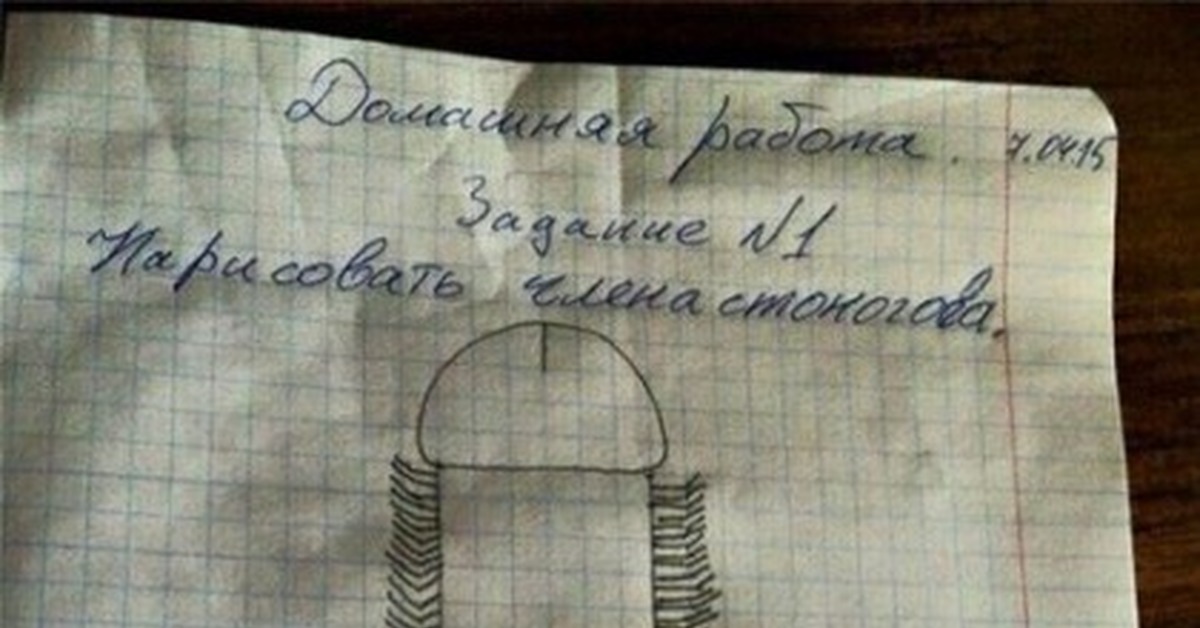 Домашняя работа. 7.04.15
Задание №1
Нарисовать члена стоногова.